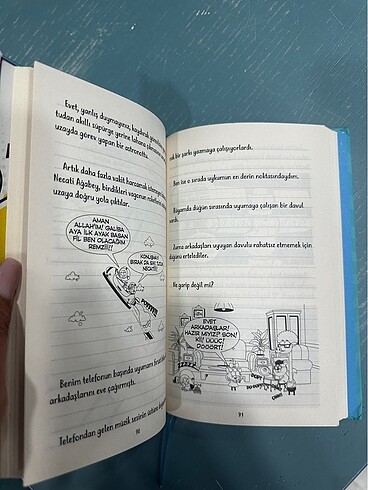 Evet, yanlış duymayınız, kaydırak
tudan akıllı süpürge yerine lahana
uzayda görev yapan bir astronotta.
Artık daha fazla vakit harcamak istemeyen
Necati Ağabey, bindikleri vagonun roketlerini
uzaya doğru yola çıktılar.
AMAN
ALLAH'IM! GALİBA
AYA İLK AYAK BASAN
FİL BEN OLACAĞIM
REMZİİİ!
KONUŞMAYI
BIRAK DA SIKI TUTUN
NECATİİ!
Benim telefonun başında uyumamı fırsat
arkadaşlarını eve çağırmıştı.
Telefondan gelen müzik sesinin üstüne
90
bir şarkı yazmaya çalışıyorlardı.
Ben ise o sırada uykumun en derin noktasındaydım.
Rüyamda düğün sırasında uyumaya çalışan bir davul
Zurna arkadaşları uyuyan davulu rahatsız etmemek için
düğünü ertelediler.
Ne garip değil mi?
EVET
ARKADAŞLAR!
HAZIR MIYIZ? BİR!
İKİ! ÜÜÜÇ!
DÖÖÖRT!
91